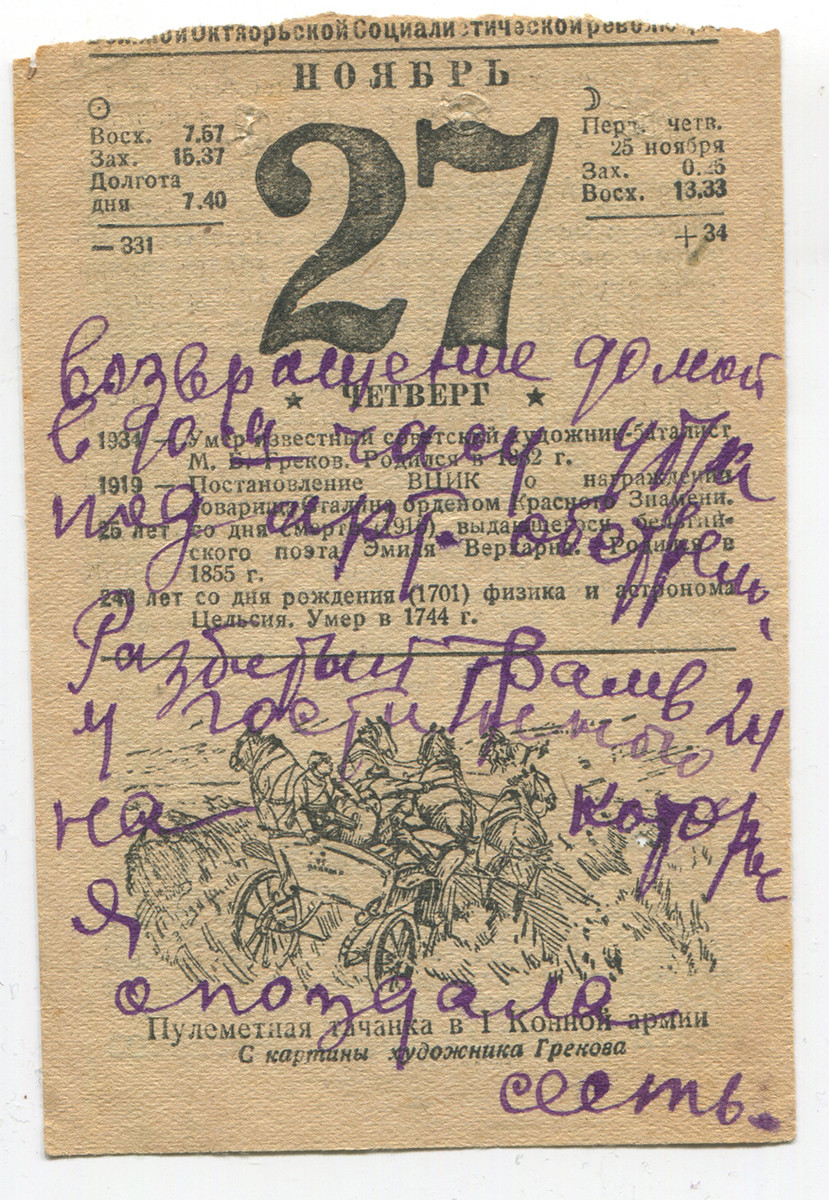 Октябрьской Социалистической
НОЯБРЬ
27
Восх. 7.57
Зах. 15.37
Долгота
дня 7.40
— 331
четв.
25 ноября
Зах.
Восх. 13.33
+ 34
возвращение домой
★ ЧЕТВЕРГ ★
в
1934 — Умер известный советский художник-баталист
М. Б. Греков. Родился в 1882 г.
1919 — Постановление ВЦИК о награждении
товарища Сталина орденом Красного Знамени.
под арт. обстрелом,
25 лет со дня смерти (1916) выдающегося бельгий-
ского поэта Эмиля Верхарна. Родился в
1855 г.
240 лет со дня рождения (1701) физика и астронома
Цельсия. Умер в 1744 г.
Разбитый трамв 24
у гостиного
на который
я
опоздала
Пулеметная тачанка в I Конной армии
С картины художника Грекова
сесть.